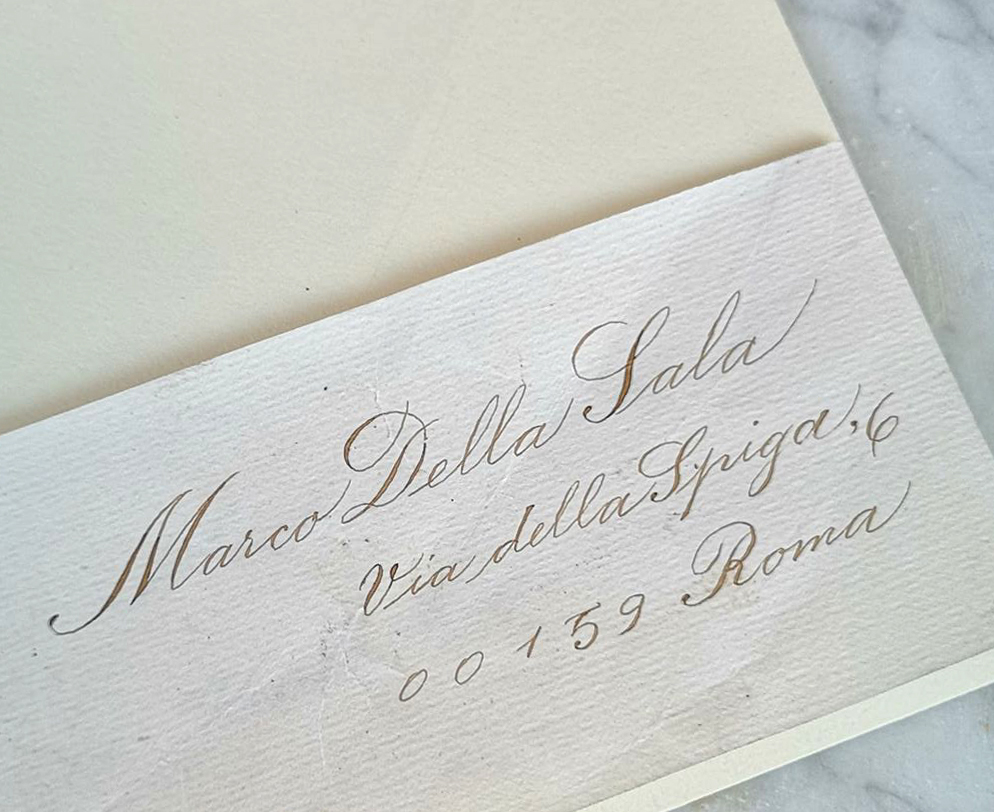 Marco Della Sala
Via della Spiga, 6
00159 Roma